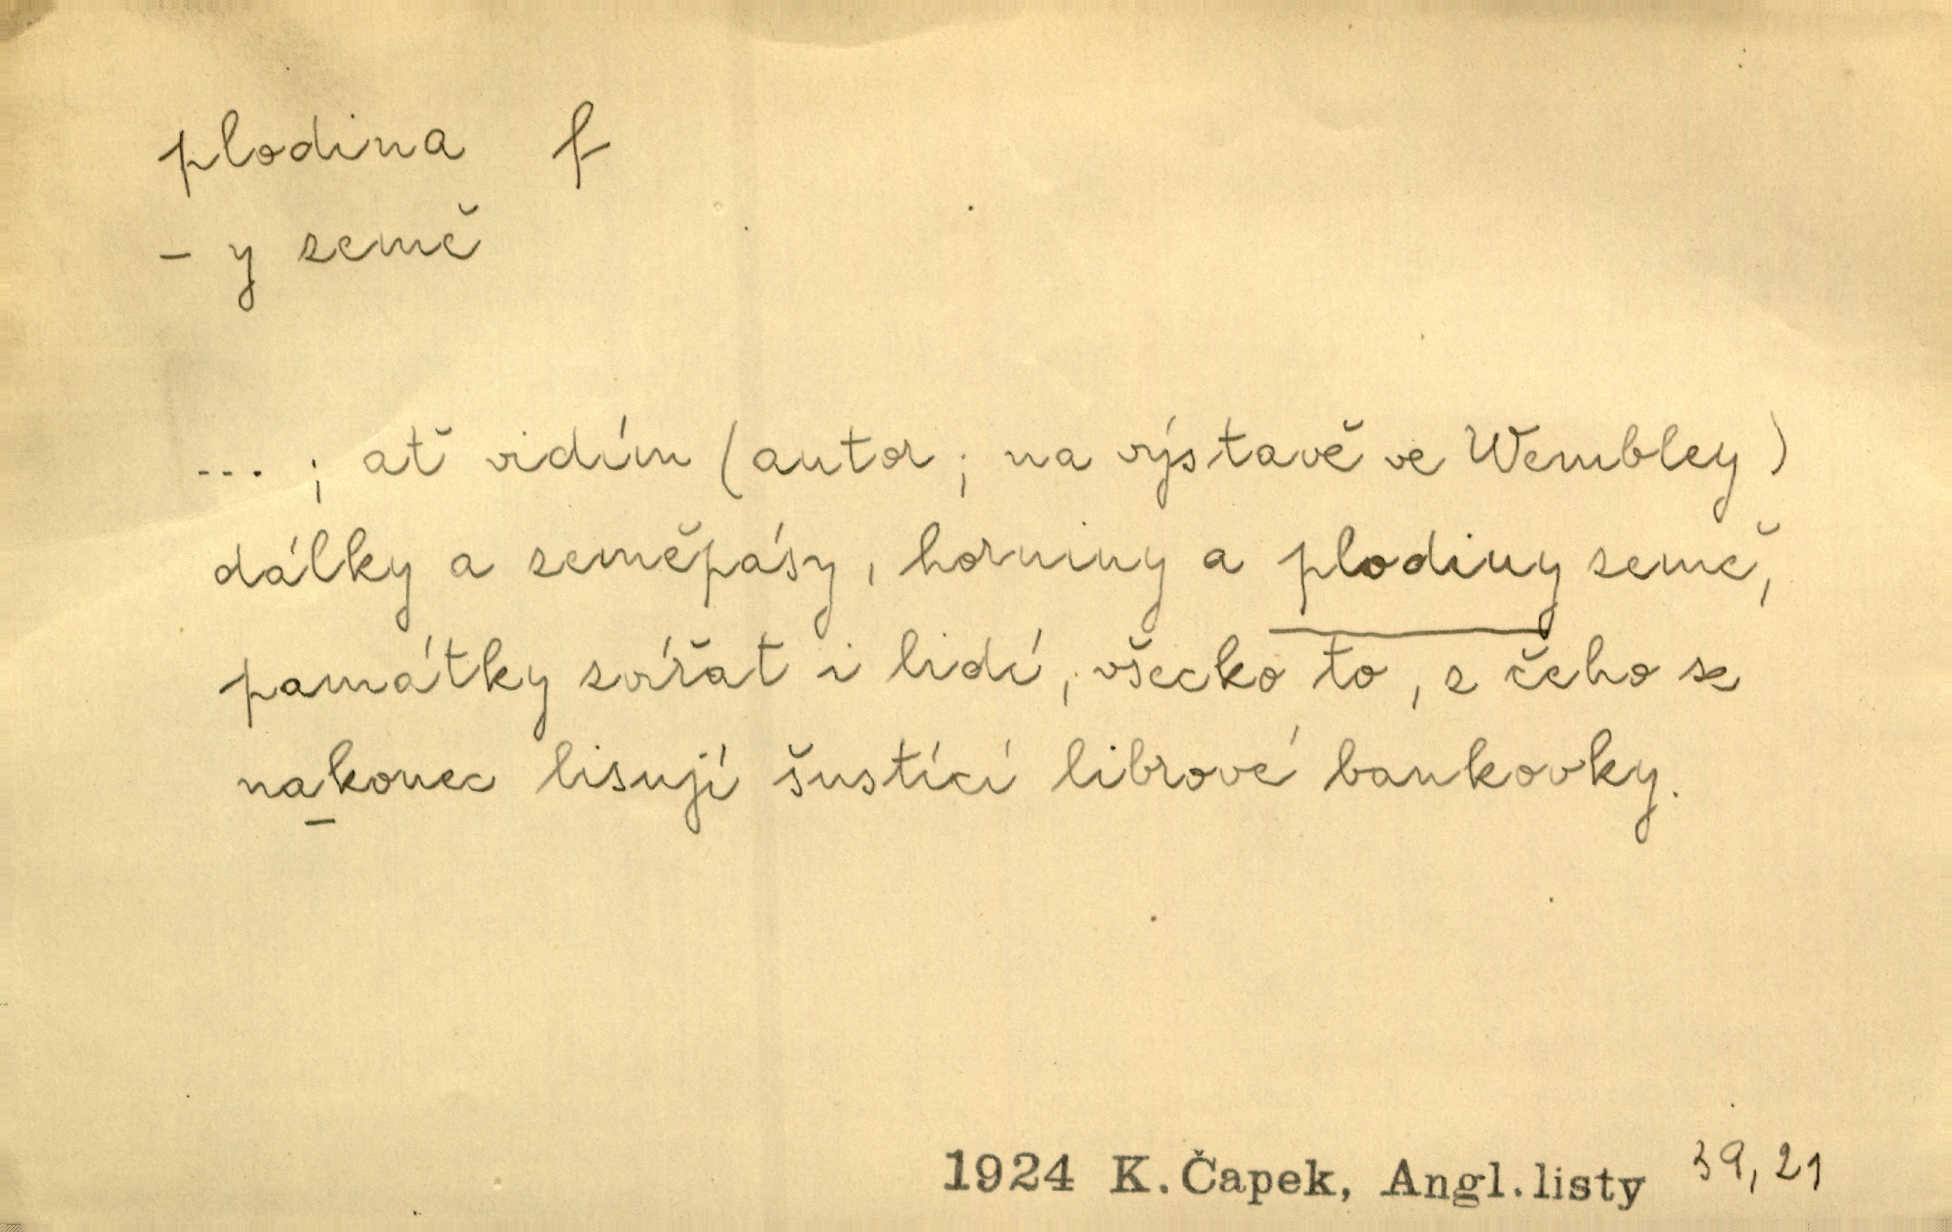 plodina f
- y země
... ; ať vidím (autor; na výstavě ve Wembley)
dálky a zeměpásy, horniny a plodiny země,
památky zvířat i lidí, všecko to, z čeho se
nakonec lisují šustící librové bankovky.
1924 K. Čapek, Angl. listy 39, 21